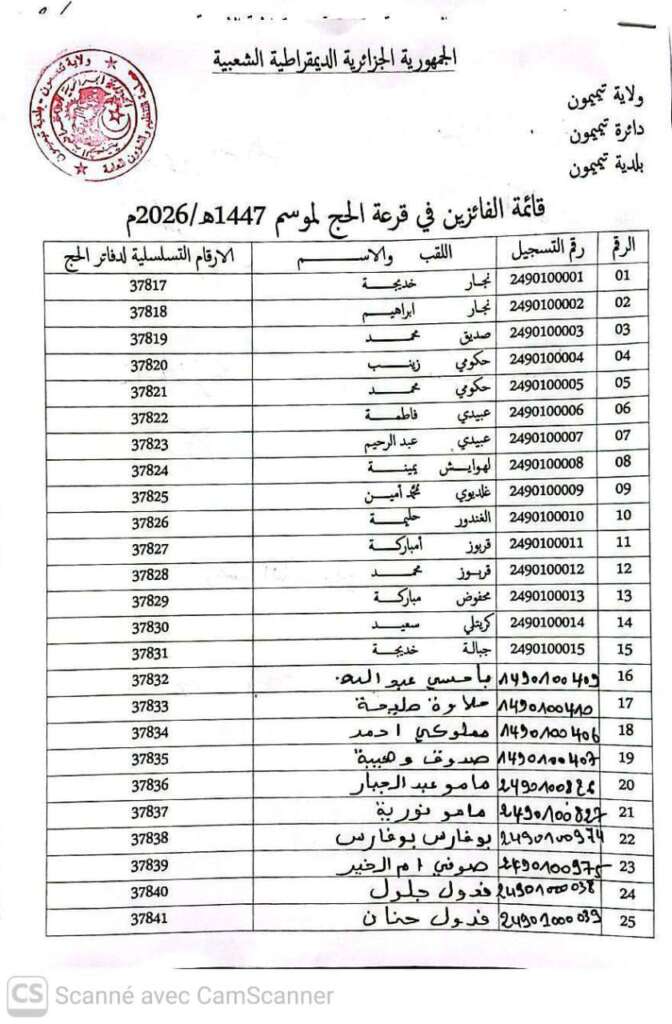 الجمهورية الجزائرية الديمقراطية الشعبية
ولاية تيميمون
دائرة تيميمون
بلدية تيميمون
قائمة الفائزين في قرعة الحج لموسم 1447هـ/2026م
الرقم رقم التسجيل اللقب والاســـم الارقام التسلسلية لدفاتر الحج
01 2490100001 نجار خديجـــة 37817
02 2490100002 نجار ابراهيـــم 37818
03 2490100003 صديق محمـــد 37819
04 2490100004 حكومي زينـــب 37820
05 2490100005 حكومي محمـــد 37821
06 2490100006 عبيدي فاطمـــة 37822
07 2490100007 عبيدي عبد الرحيم 37823
08 2490100008 لهوايـــش يمينـــة 37824
09 2490100009 غلديوي محمد أميـــن 37825
10 2490100010 الغندور حليمـــة 37826
11 2490100011 قربوز أمباركـــة 37827
12 2490100012 قربـــوز محمـــد 37828
13 2490100013 محفوض مباركـــة 37829
14 2490100014 كربتلي سعيـــد 37830
15 2490100015 جبالة خديجـــة 37831
16 1490100409 باحسي عبد الله 37832
17 1490100410 حلاوة مليحة 37833
18 1490100406 مملوكي احمد 37834
19 1490100407 صدوق وهيبة 37835
20 2490100826 مامو عبد الجبار 37836
21 2490100827 مامو نورية 37837
22 2490100974 بوفارس بوفارس 37838
23 2490100975 صوفي ام الخير 37839
24 2490100038 قدول جلول 37840
25 2490100039 قدول حنان 37841
CS Scanné avec CamScanner